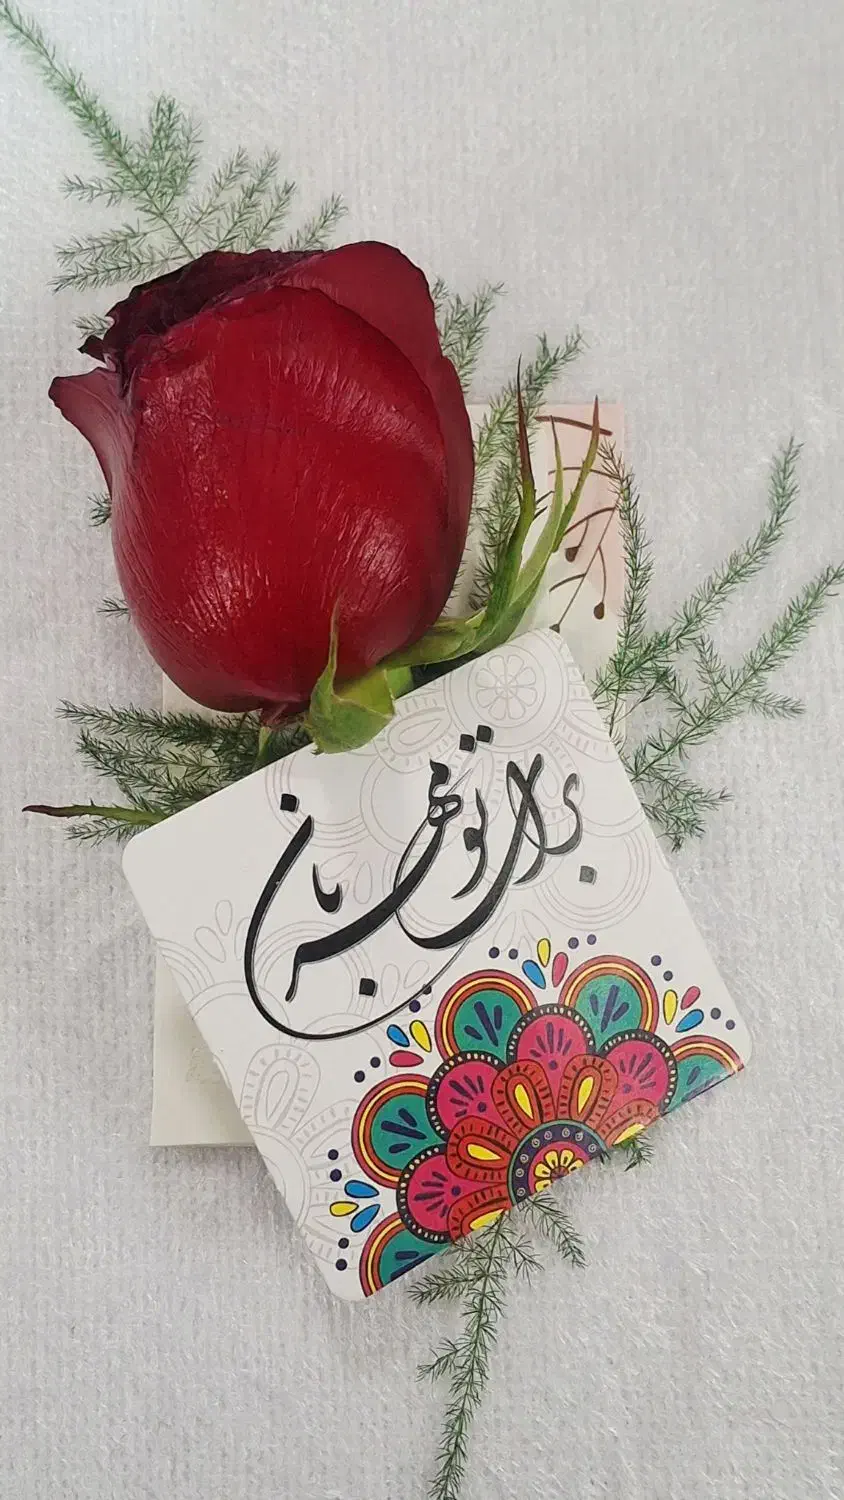 برای تو مهربان